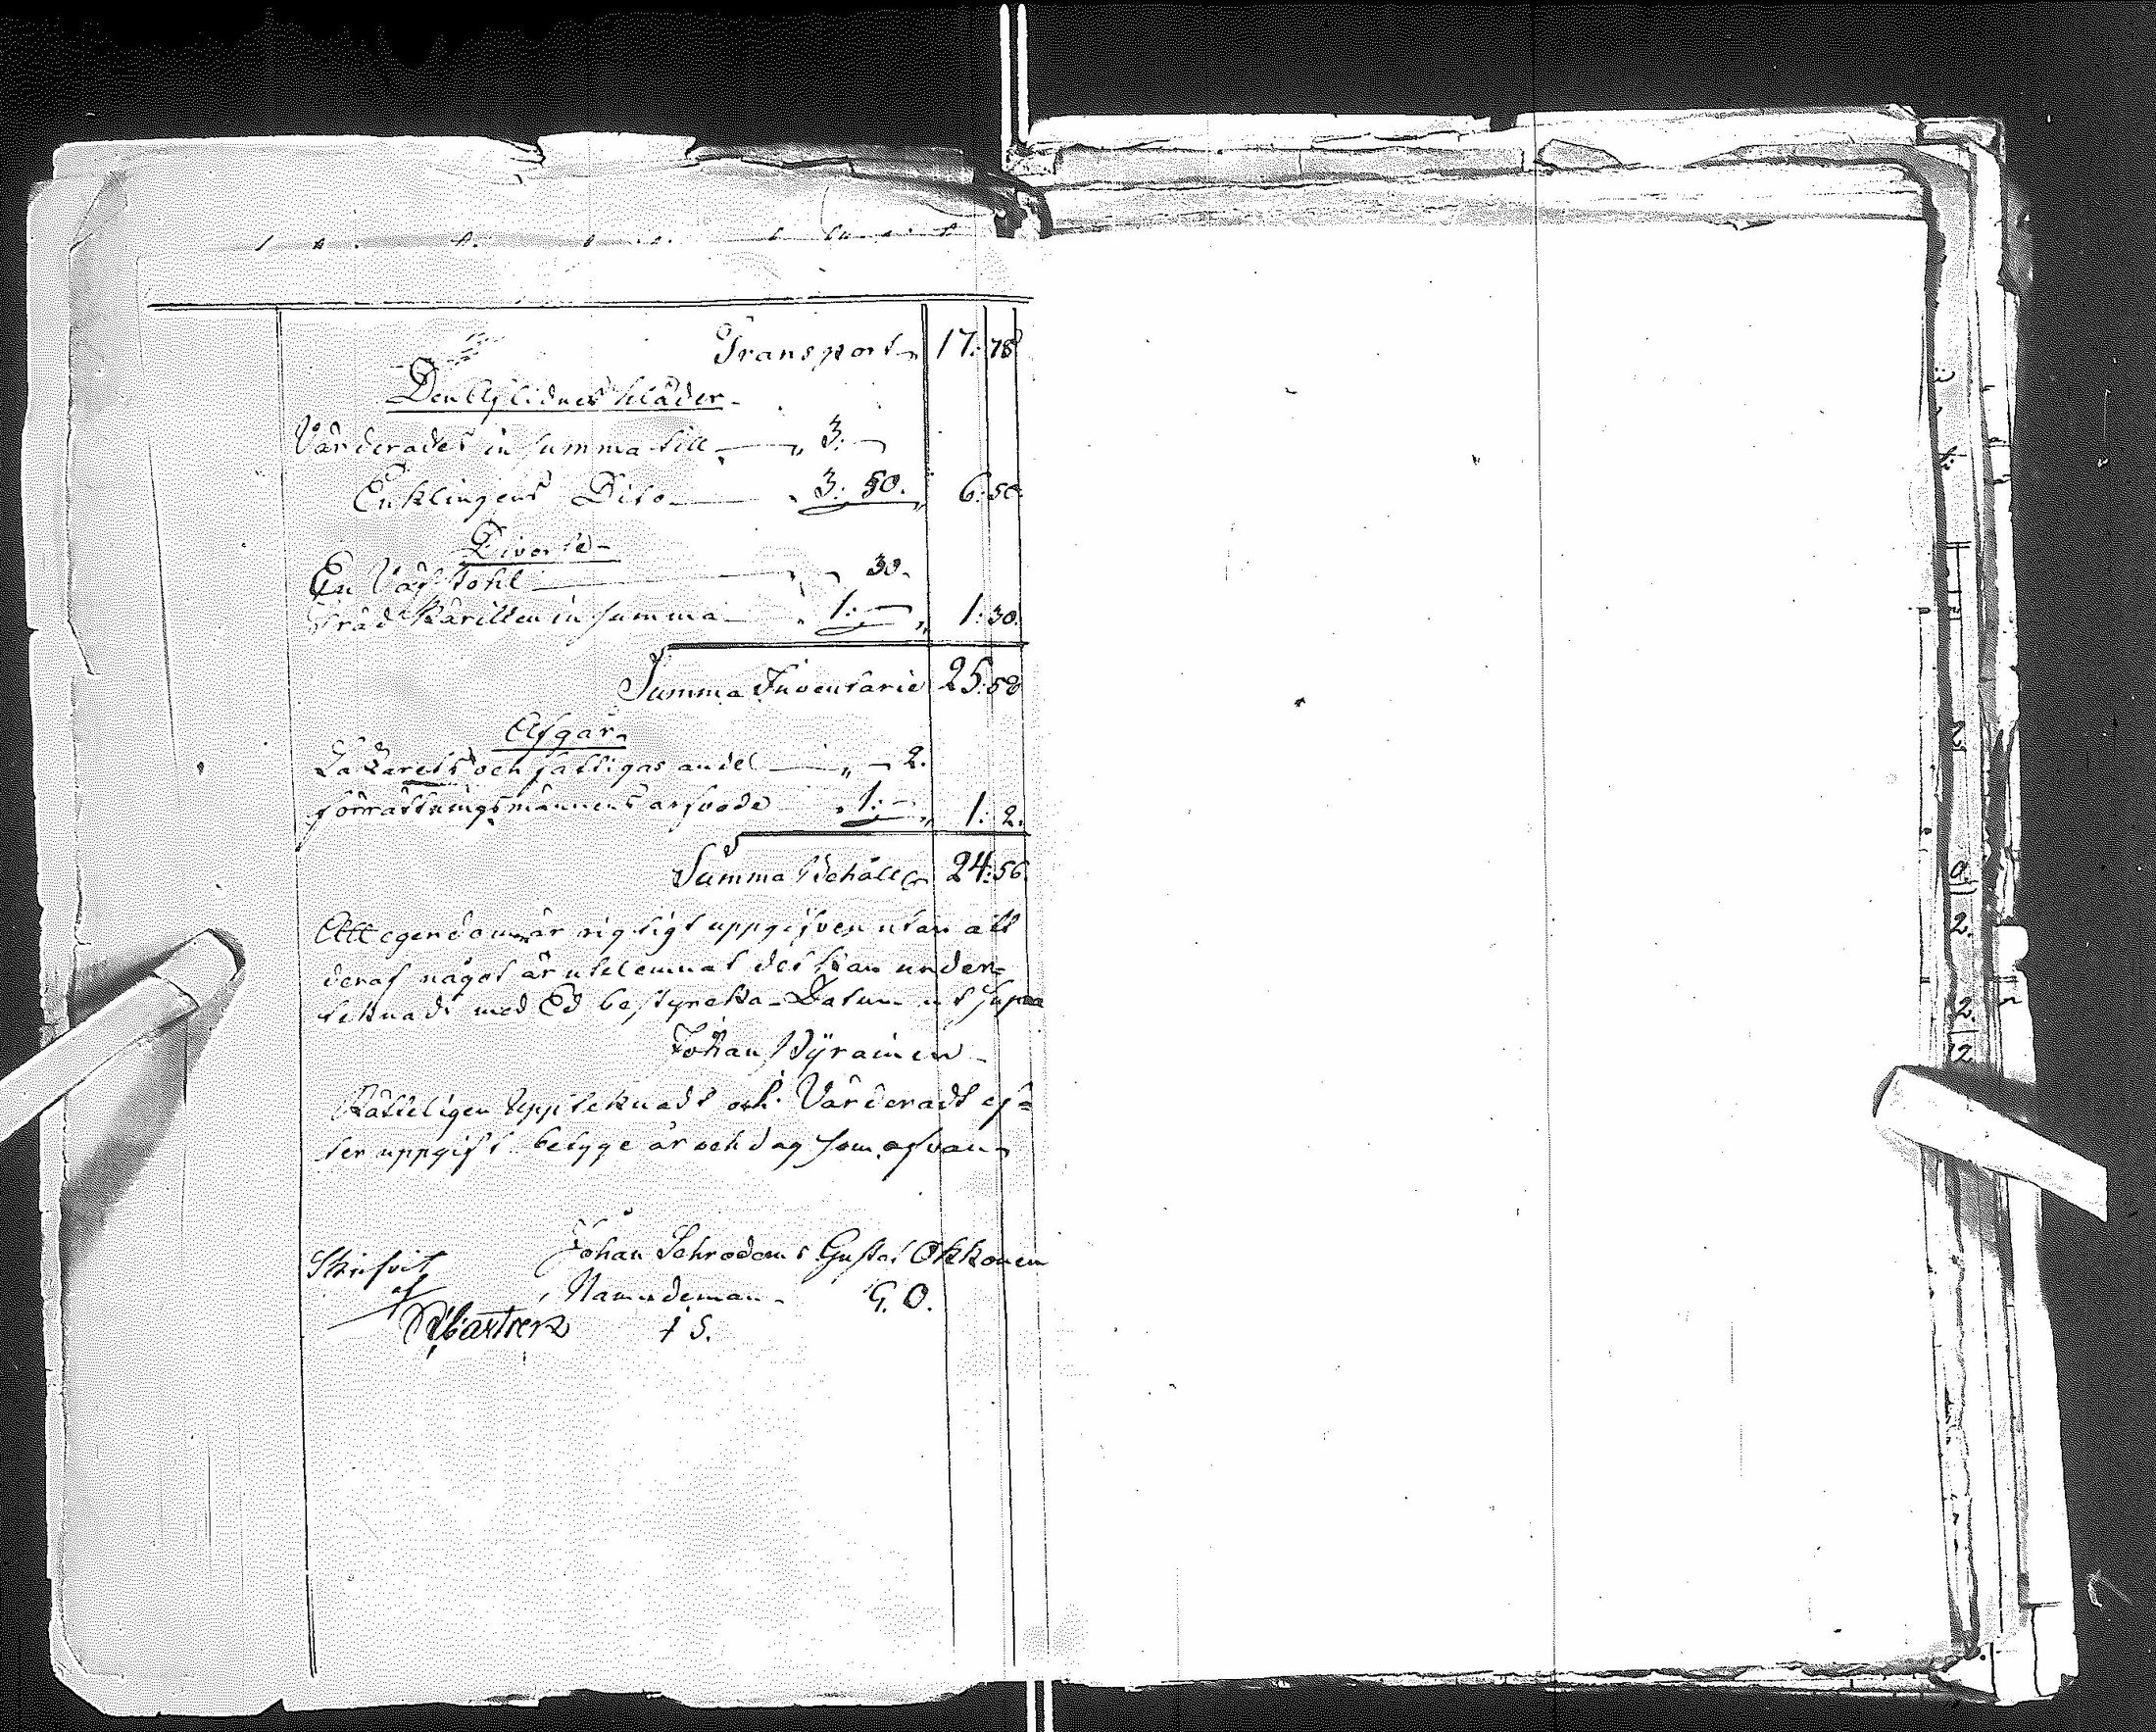 Transport 17: 78
Den Aflidnes kläder
Värderades in summa till 3. —
Enklingens Dito 3. 50. 6. 50.
Diverse
En Väfstohl 30.
Träd Kärillen in summa 1: — 1: 30.
Summa Inventarie 25: 58
Afgår
Lazarets och fattigas andel 2.
förrättningsmännens arfvode 1: — 1: 2.
Summa Behåll 24: 56.
Att egendomen är rigtigt uppgifven utan att
deraf något är utelemnat det kan under=
teknade med Ed bestyrcka Datum ut supra
Johan Pyrainen
Rätteligen Uppteknadt och Värderadt ef=
ter uppgift betyge år och dag som ofvan
Johan Schroderus Gustaf Okkonen
Skrifvit
af
Nämndeman G. O.
Castren
I S.
2.
2.
12